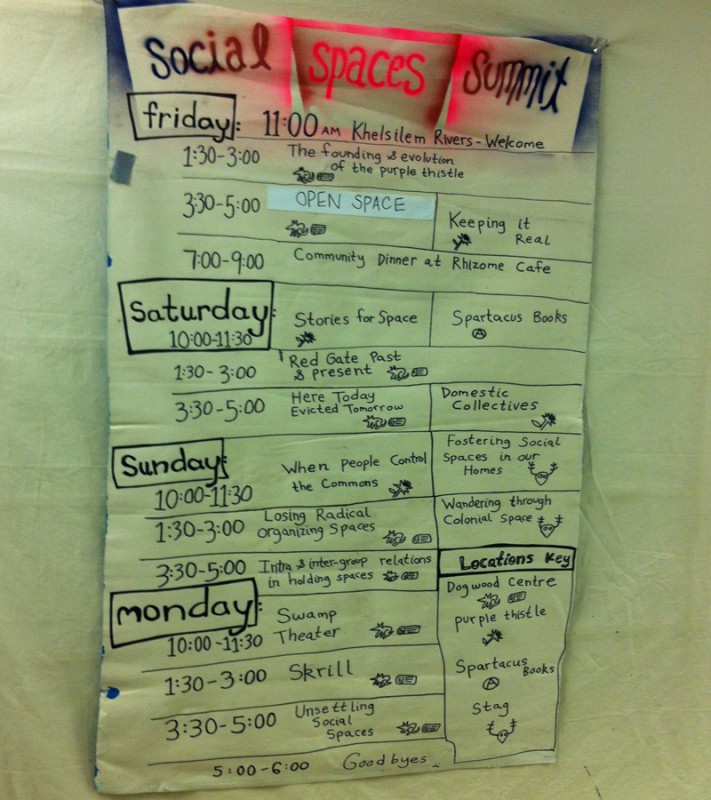 Social Spaces Summit
friday: 11:00 AM Khelsilem Rivers - Welcome
1:30-3:00 The founding & evolution
of the purple thistle
3:30-5:00 OPEN SPACE
Keeping it
Real
7:00-9:00 Community Dinner at Rhizome Cafe
Saturday:
10:00-11:30
Stories for Space
Spartacus Books
1:30-3:00 Red Gate Past
& present
3:30-5:00 Here Today
Evicted Tomorrow
Domestic
Collectives
Sunday:
10:00-11:30
When people Control
the Commons
Fostering Social
Spaces in our
Homes
1:30-3:00 Losing Radical
organizing Spaces
Wandering through
Colonial Space
3:30-5:00 Intra & inter-group relations
in holding spaces
monday:
10:00-11:30
Swamp
Theater
1:30-3:00 Skrill
3:30-5:00 Unsettling
Social
Spaces
5:00-6:00 Goodbyes
Locations Key
Dogwood Centre
purple thistle
Spartacus Books
Stag